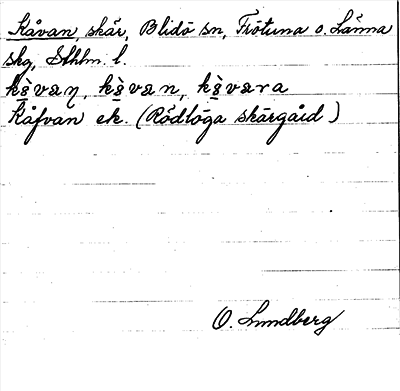 Kåvan, skär, Blidö sn, Frötuna o. Länna
skg, Sthlm. l.
kè̱van, kè̱van, kè̱vara
Kåfvan ek. (Rödlöga skärgård)
O. Lundberg